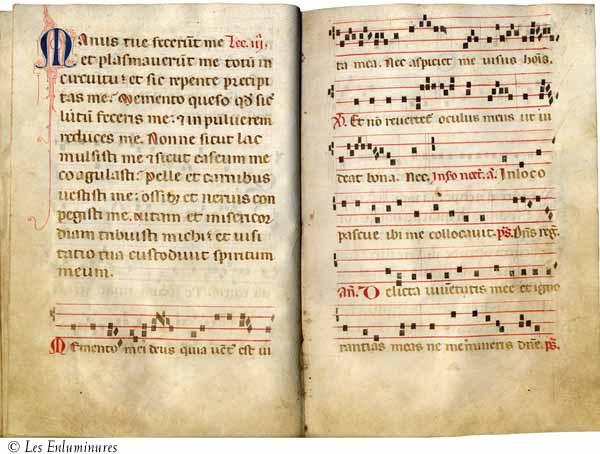 Manus tue fecerūt me Lec. iij.
et plasmaverūt me totū in
circuitu: et sic repente precipi
tas me. Memento queso qđ sic
lutū feceris me: et in pulverem
reduces me. Nonne sicut lac
mulsisti me et sicut caseum me
coagulasti? pelle et carnibus
vestisti me: ossib; et nervis con
pegisti me. vitam et misericor
diam tribuisti michi: et visi
tatio tua custodivit spiritum
meum.
Memento mei deus quia vēt est vi
ta mea. Nec aspiciet me visus hoīs.
Et nō revertet oculus meus ut vi
deat bona. Nec. In loco
pascue ibi me collocavit. ps. Dn̄s reg.
añ. Delicta iuventutis mee et igno
rantias meas ne memineris dn̄e. ps.
© Les Enluminures